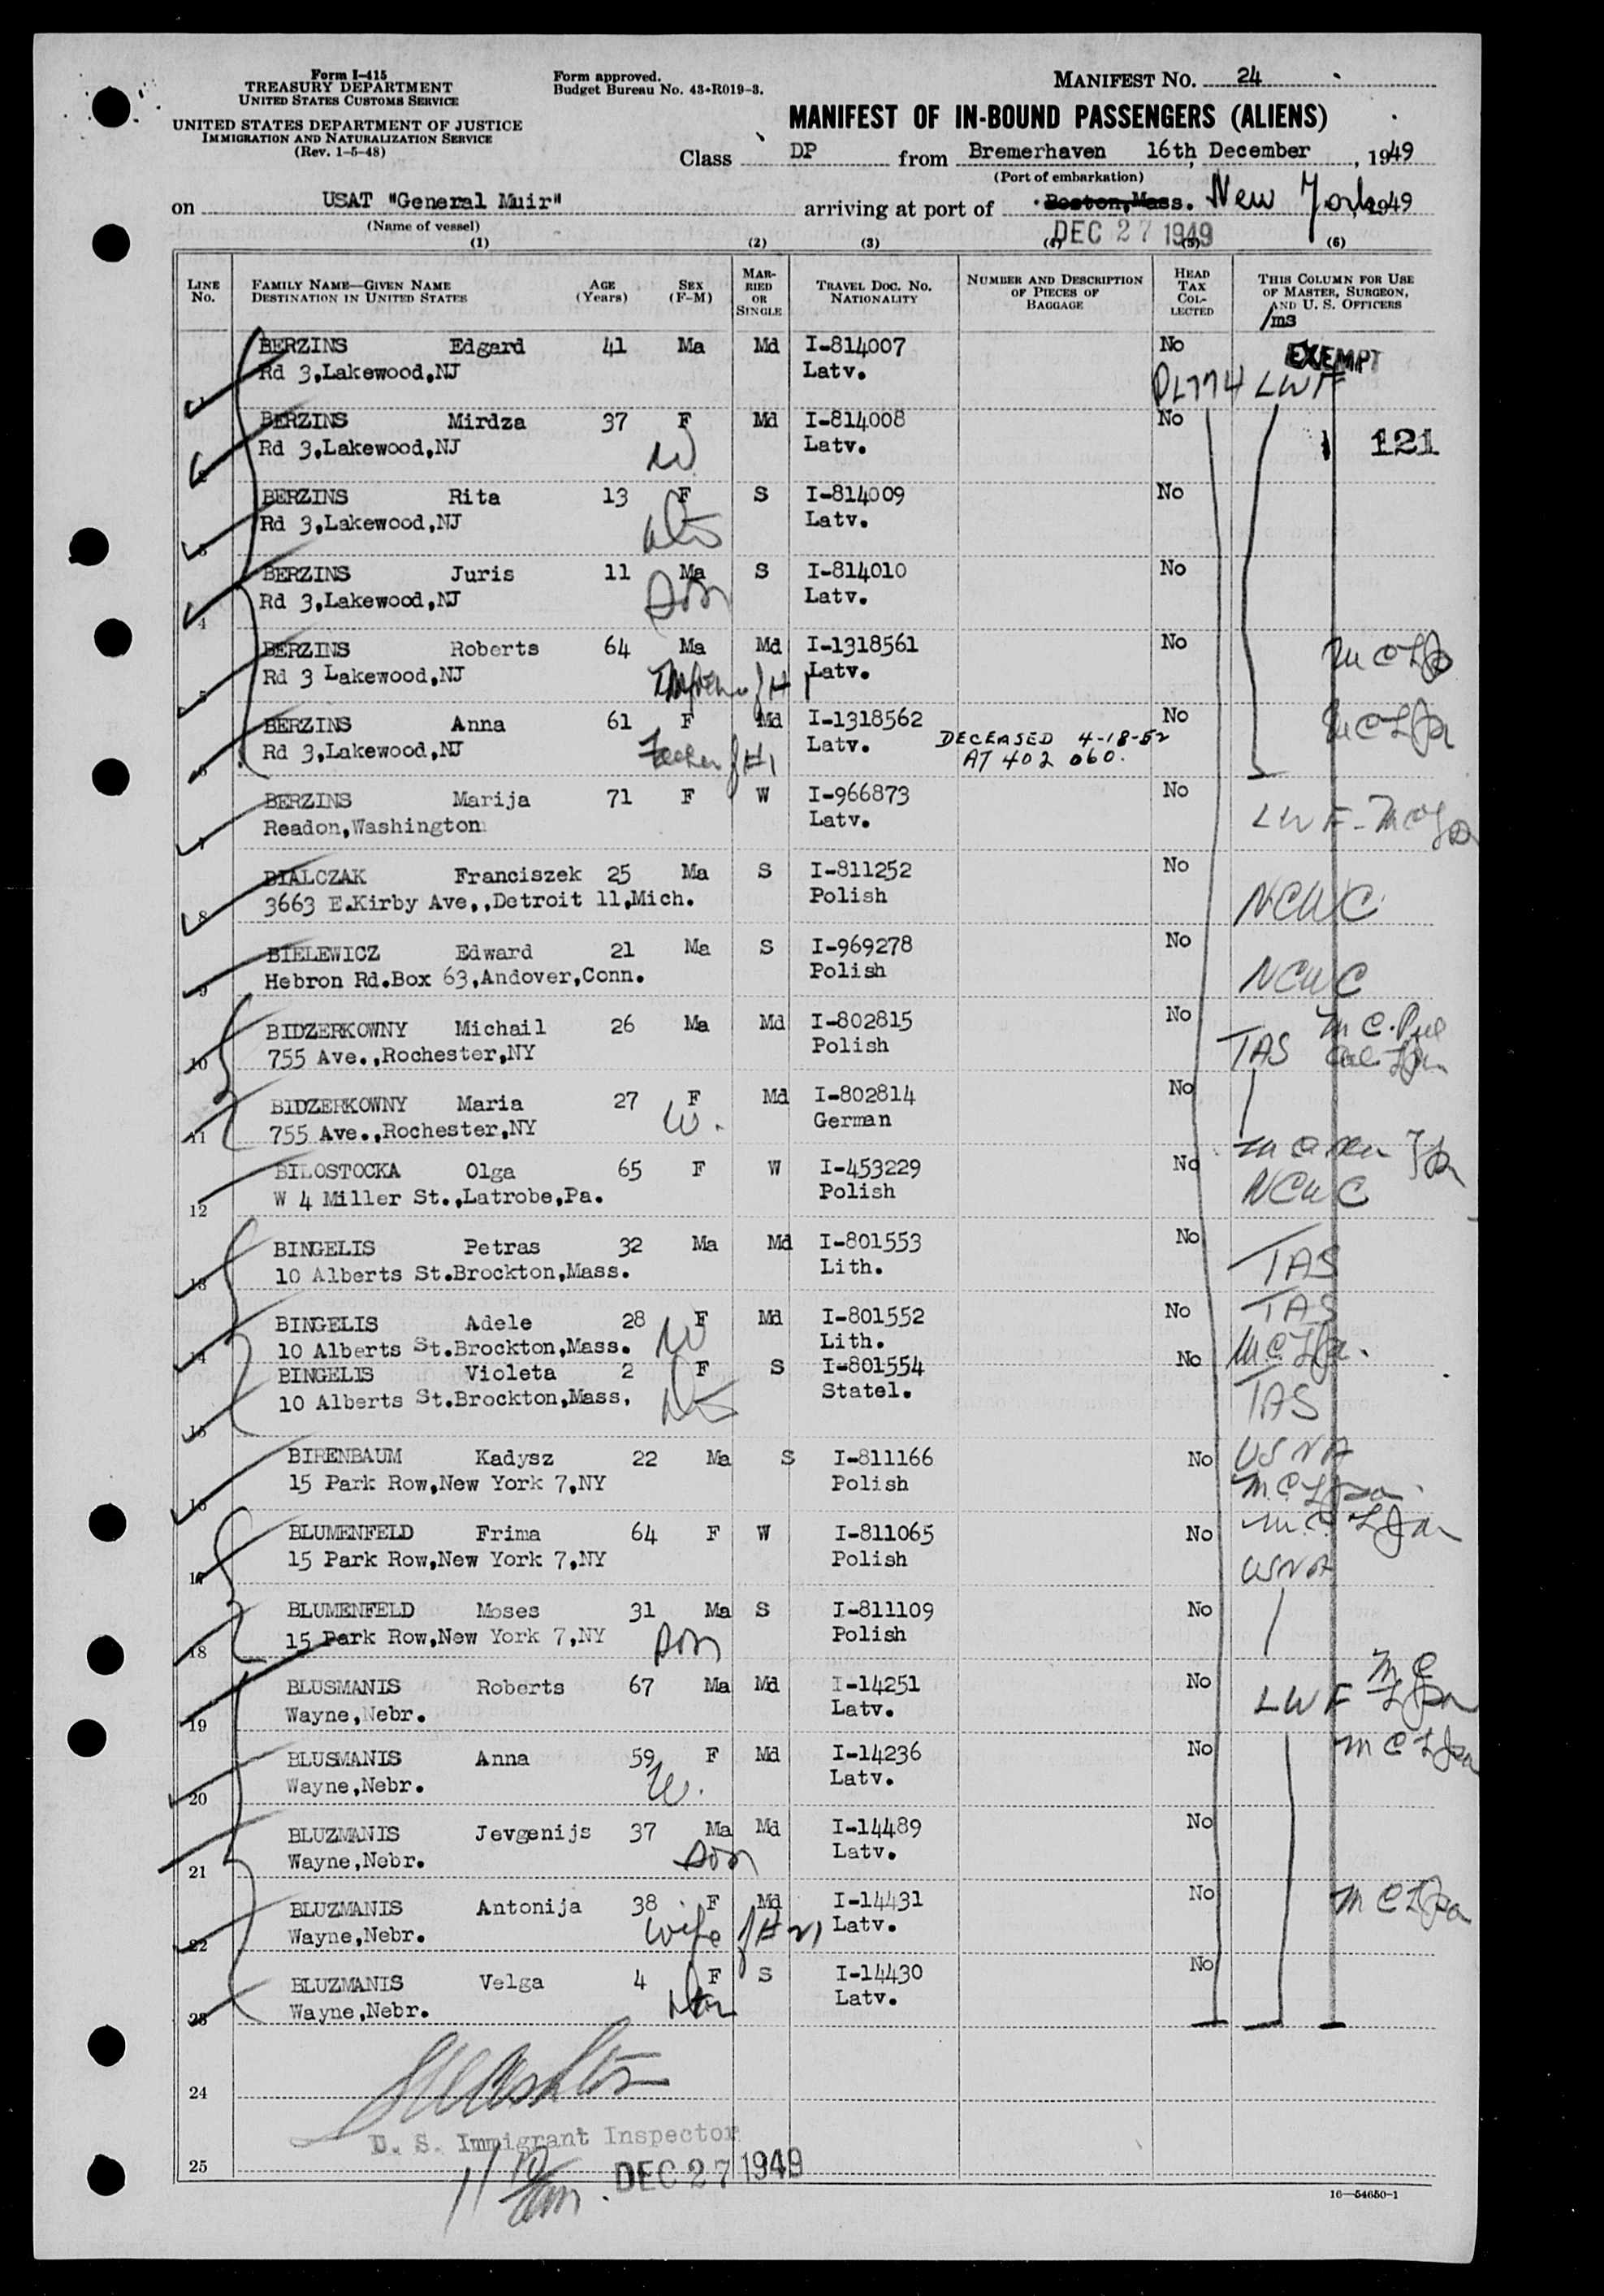 Form I-415
TREASURY DEPARTMENT
UNITED STATES CUSTOMS SERVICE
UNITED STATES DEPARTMENT OF JUSTICE
IMMIGRATION AND NATURALIZATION SERVICE
(Rev. 1-5-48)
Form approved.
Budget Bureau No. 43-R019-3.
MANIFEST NO. 24
MANIFEST OF IN-BOUND PASSENGERS (ALIENS)
Class DP from Bremerhaven 16th, December, 1949
(Port of embarkation)
on USAT "General Muir" arriving at port of Boston,Mass. New York, 1949
(Name of vessel)
DEC 27 1949
(1) (2) (3) (4) (5) (6)
LINE No. FAMILY NAME—GIVEN NAME DESTINATION IN UNITED STATES AGE (Years) SEX (F-M) MARRIED OR SINGLE TRAVEL DOC. NO. NATIONALITY NUMBER AND DESCRIPTION OF PIECES OF BAGGAGE HEAD TAX COLLECTED THIS COLUMN FOR USE OF MASTER, SURGEON, AND U. S. OFFICERS
/ms
BERZINS Edgard 41 Ma Md I-814007 No EXEMPT
Rd 3,Lakewood,NJ Latv. DL774 LWF
BERZINS Mirdza 37 F Md I-814008 No
2 Rd 3,Lakewood,NJ W Latv. 121
BERZINS Rita 13 F S I-814009 No
3 Rd 3,Lakewood,NJ Latv.
BERZINS Juris 11 Ma S I-814010 No
4 Rd 3,Lakewood,NJ Son Latv.
BERZINS Roberts 64 Ma Md I-1318561 No
5 Rd 3 Lakewood,NJ Latv.
BERZINS Anna 61 F Md I-1318562 No
6 Rd 3,Lakewood,NJ Latv. DECEASED 4-18-52
AT 402 060.
BERZINS Marija 71 F W I-966873 No
7 Readon,Washington Latv. LWF
BIALCZAK Franciszek 25 Ma S I-811252 No
8 3663 E.Kirby Ave,,Detroit 11,Mich. Polish NCWC
BIELEWICZ Edward 21 Ma S I-969278 No
9 Hebron Rd.Box 63,Andover,Conn. Polish NCWC
BIDZERKOWNY Michail 26 Ma Md I-802815 No
10 755 Ave.,Rochester,NY Polish TAS
BIDZERKOWNY Maria 27 F Md I-802814 No
11 755 Ave.,Rochester,NY W. German
BILOSTOCKA Olga 65 F W I-453229 No
12 W 4 Miller St.,Latrobe,Pa. Polish NCWC
BINGELIS Petras 32 Ma Md I-801553 No
13 10 Alberts St.Brockton,Mass. Lith. TAS
BINGELIS Adele 28 F Md I-801552 No TAS
14 10 Alberts St.Brockton,Mass. W Lith.
BINGELIS Violeta 2 F S I-801554 No
15 10 Alberts St.Brockton,Mass, Statel. TAS
BIRENBAUM Kadysz 22 Ma S I-811166 No USNA
16 15 Park Row,New York 7,NY Polish
BLUMENFELD Frima 64 F W I-811065 No
17 15 Park Row,New York 7,NY Polish USNA
BLUMENFELD Moses 31 Ma S I-811109 No
18 15 Park Row,New York 7,NY Son Polish
BLUSMANIS Roberts 67 Ma Md I-14251 No LWF
19 Wayne,Nebr. Latv.
BLUSMANIS Anna 59 F Md I-14236 No
20 Wayne,Nebr. W. Latv.
BLUZMANIS Jevgenijs 37 Ma Md I-14489 No
21 Wayne,Nebr. Son Latv.
BLUZMANIS Antonija 38 F Md I-14431 No
22 Wayne,Nebr. wife of #21 Latv.
BLUZMANIS Velga 4 F S I-14430 No
23 Wayne,Nebr. Latv.
24
U. S. Immigrant Inspector
25 DEC 27 1949
16—54650-1